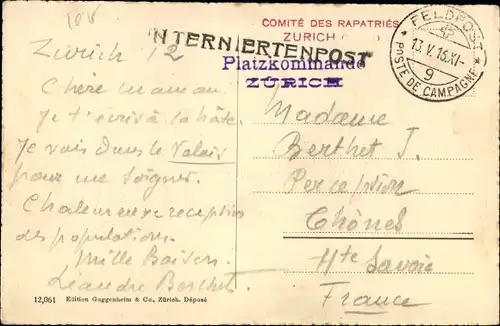 COMITÉ DES RAPATRIÉS
ZURICH
INTERNIERTENPOST
Platzkommando
ZÜRICH
FELDPOST
13.V.16.XI-
9
POSTE DE CAMPAGNE
Zurich 12
Chère maman
Je t'écris à la hâte
Je vais dans le Valais
pour me soigner.
Chaleureuse reception
des populations.
Mille Baisers.
Léandre Berthet.
Madame
Berthet J.
Perception
Thônes
Hte Savoie
France
12,061 Edition Guggenheim & Co., Zürich. Déposé